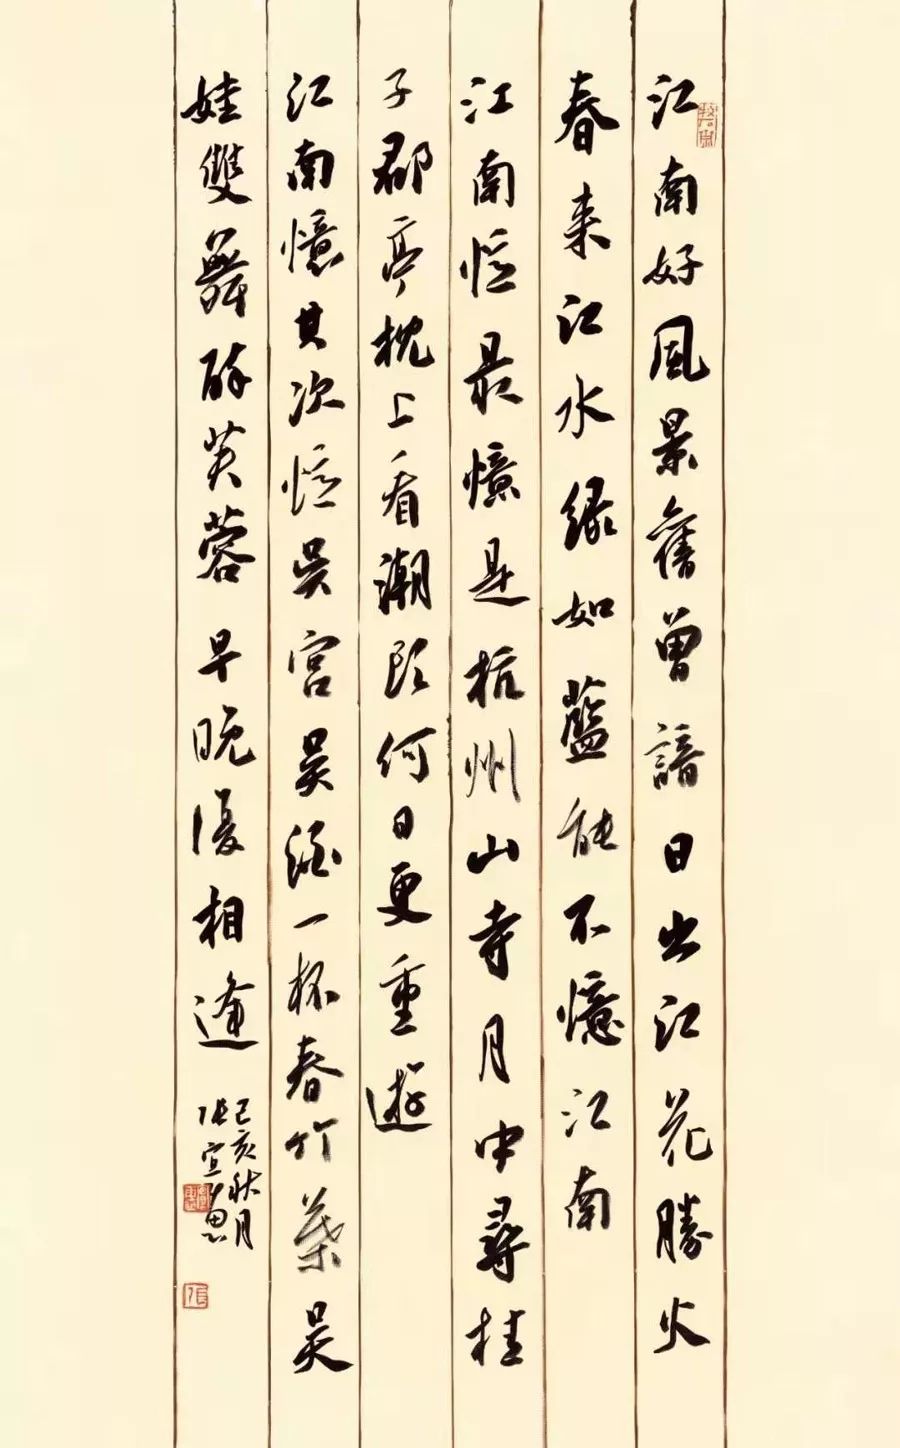 江南好風景舊曾諳日出江花勝火
春来江水緑如藍能不憶江南
江南憶最憶是杭州山寺月中尋桂
子郡亭枕上看潮頭何日更重遊
江南憶其次憶吳宮吳酒一杯春竹葉吳
娃雙舞醉芙蓉早晚復相逢
己亥秋月
张宣